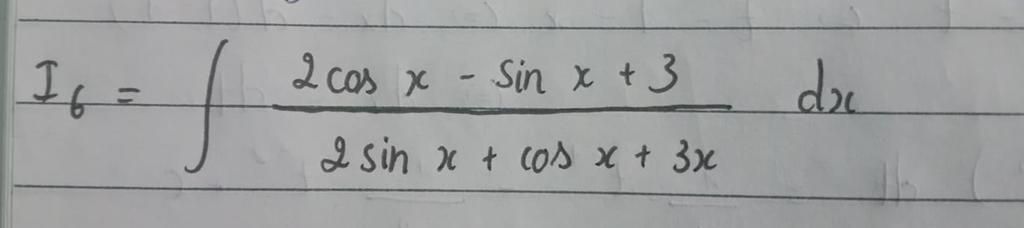 I₆ = ∫ (2 cos x - sin x + 3) / (2 sin x + cos x + 3x) dx